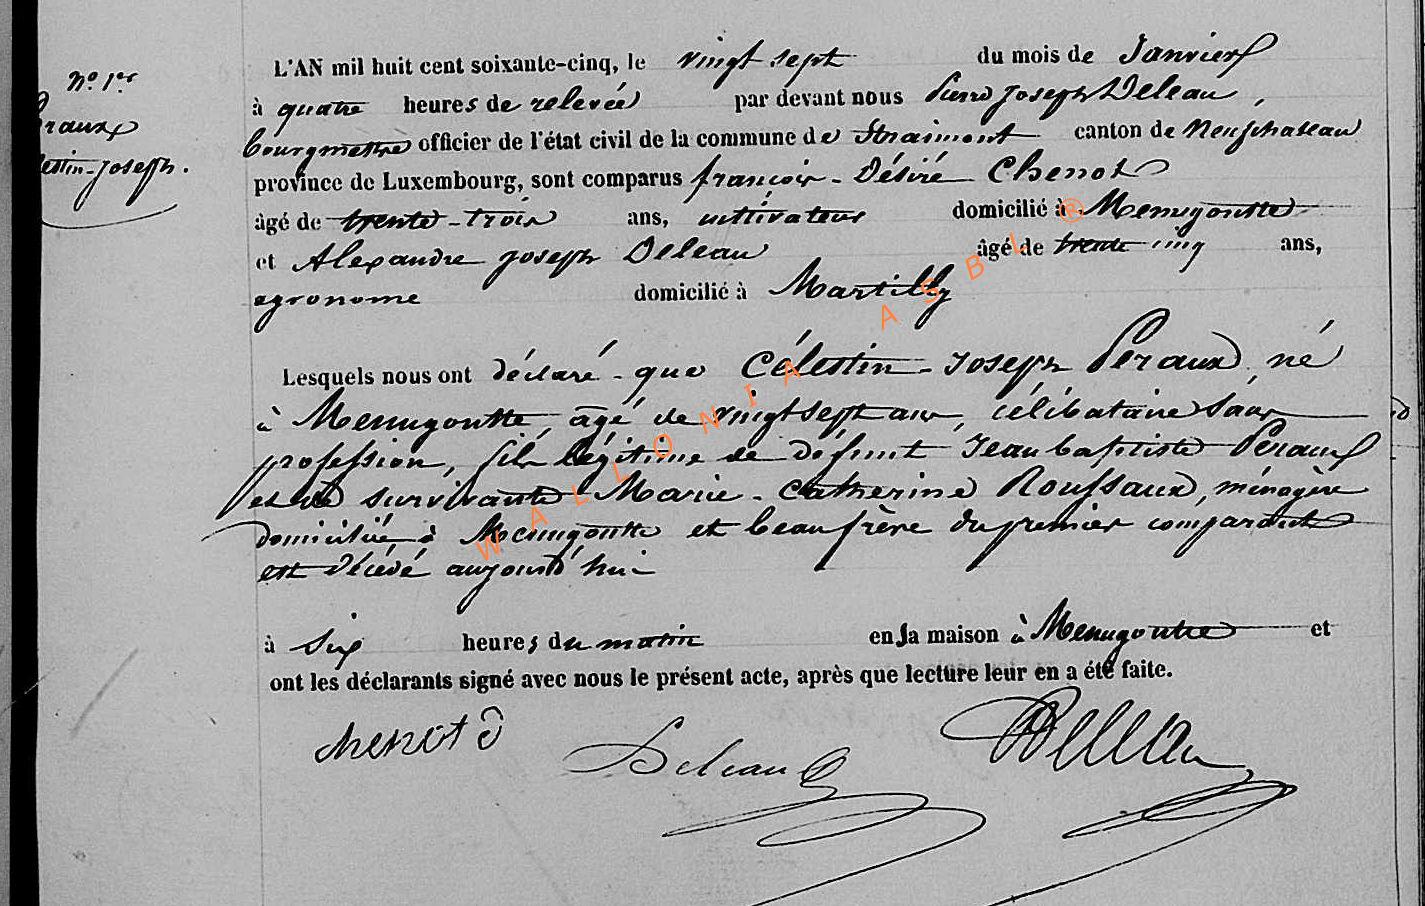 N° 1er
Peraux
Célestin-Joseph.
L'AN mil huit cent soixante-cinq, le vingt sept du mois de Janvier
à quatre heures de relevée par devant nous Pierre Joseph Deleau,
bourgmestre officier de l'état civil de la commune de Straimont canton de Neufchateau
province de Luxembourg, sont comparus françois-Désiré Chenot
âgé de trente-trois ans, cultivateur domicilié à Menugoutte
et Alexandre Joseph Deleau âgé de trente cinq ans,
agronome domicilié à Martilly
Lesquels nous ont déclaré que Célestin-Joseph Peraux, né
à Menugoutte, âgé de vingt sept ans, célibataire sans
profession, fils légitime de défunt Jean baptiste Peraux
et de survivante Marie-Catherine Roussaux, ménagère
domiciliée à Menugoutte et beau frère du premier comparant
est décédé aujourd'hui
à six heures du matin en sa maison à Menugoutte et
ont les déclarants signé avec nous le présent acte, après que lecture leur en a été faite.
chenot d
Deleau
Deleau
WALLONIA ASBL ®